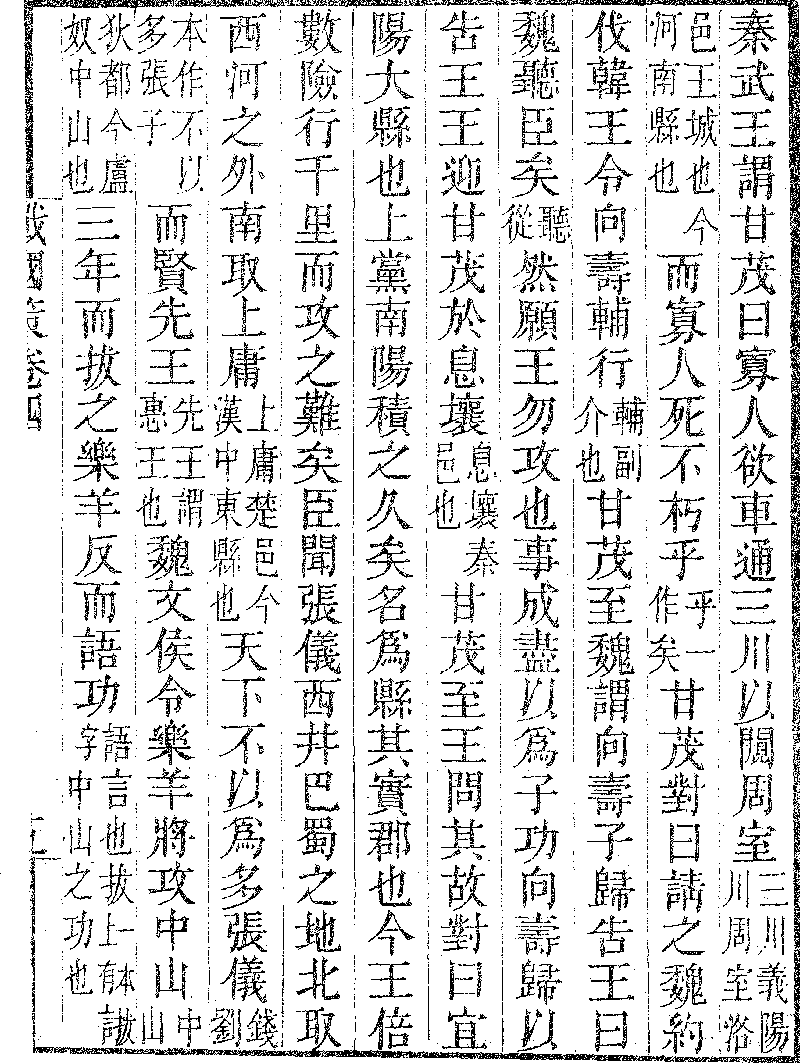 秦武王謂甘茂曰寡人欲車通三川以闚周室三川義陽川周室洛
邑王城也今河南縣也而寡人死不朽乎乎一作矣甘茂對曰請之魏約
伐韓王令向壽輔行輔副介也甘茂至魏謂向壽子歸告王曰
魏聽臣矣聽從然願王勿攻也事成盡以爲子功向壽歸以
告王王迎甘茂於息壤息壤秦邑也甘茂至王問其故對曰宜
陽大縣也上黨南陽積之久矣名爲縣其實郡也今王倍
數險行千里而攻之難矣臣聞張儀西幷巴蜀之地北取
西河之外南取上庸上庸楚邑今漢中東縣也天下不以爲多張儀錢劉
本作不以多張子而賢先王先王謂惠王也魏文侯令樂羊將攻中山中山
狄都今盧奴中山也三年而拔之樂羊反而語功語言也拔上一本有字中山之功也
戰國策卷四